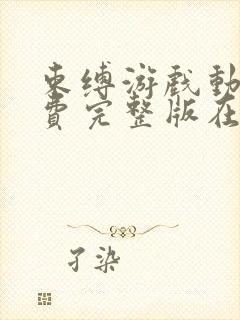 束缚游戏动
费完整版在
孑染